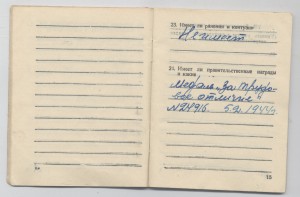 23. Имеет ли ранения и контузии
Не имеет
24. Имеет ли правительственные награды
и какие
Медаль „За трудо-
вое отличие"
N24916 5.2.1944г.
15